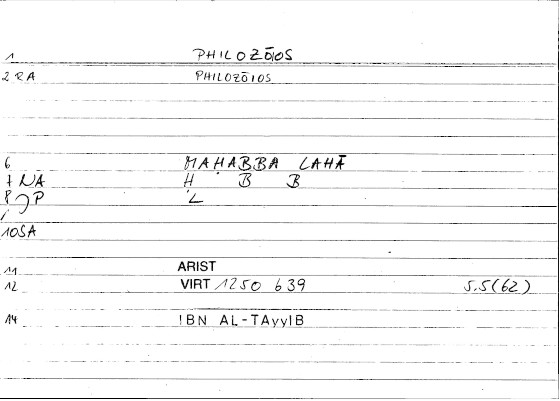 1 PHILOZŌIOS
2 RA PHILOZŌIOS
6 MAḤABBA LAHĀ
7 NA Ḥ B B
8 P L
10 SA
11 ARIST
12 VIRT 1250 639 5.5(62)
14 IBN AL-TAyyIB